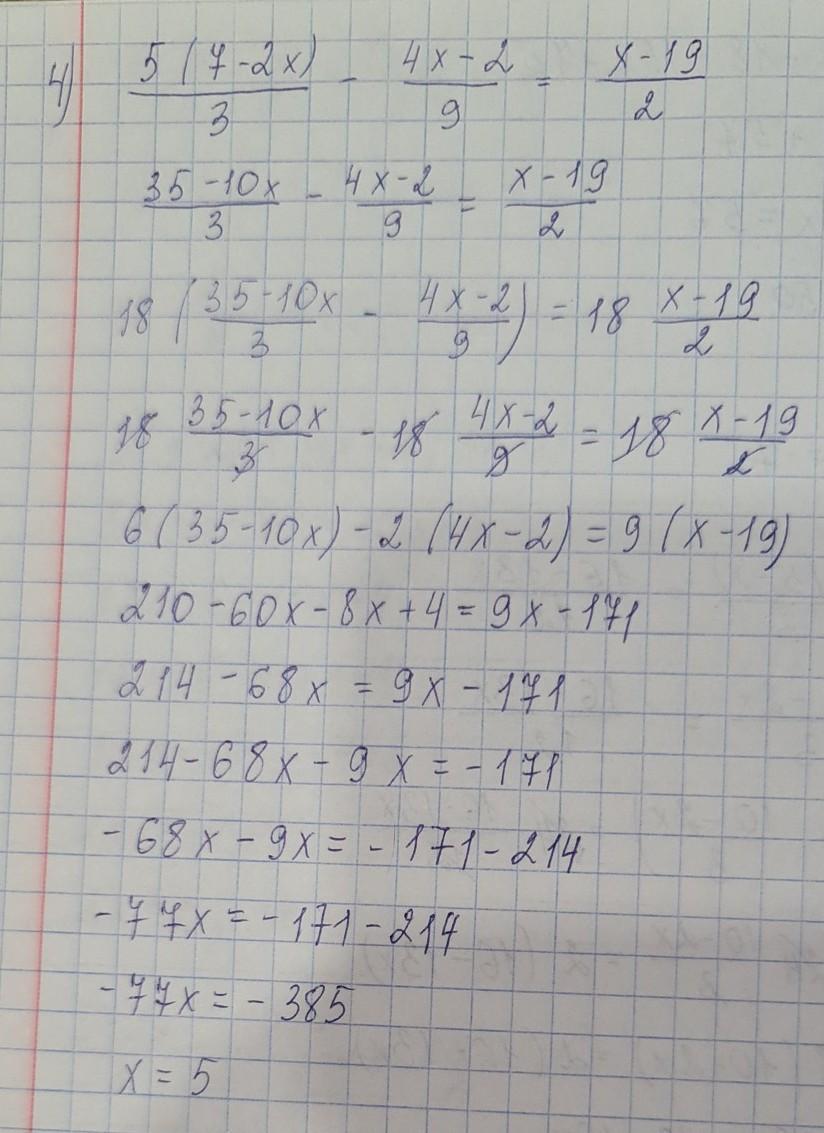 4) 5(7-2x)/3 - 4x-2/9 = x-19/2
35-10x/3 - 4x-2/9 = x-19/2
18(35-10x/3 - 4x-2/9) = 18 x-19/2
18 35-10x/3 - 18 4x-2/9 = 18 x-19/2
6(35-10x)-2(4x-2)=9(x-19)
210-60x-8x+4=9x-171
214-68x=9x-171
214-68x-9x=-171
-68x-9x=-171-214
-77x=-171-214
-77x=-385
x=5